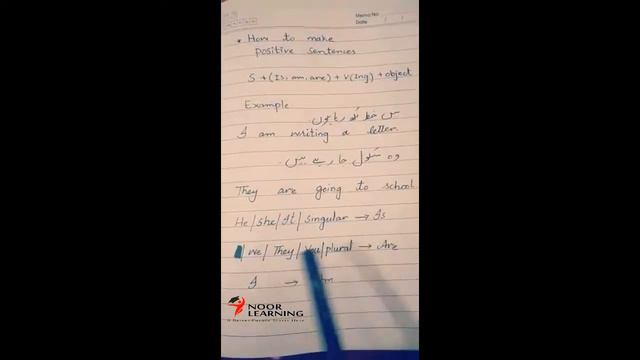 Memo No.
Date / /
* How to make
positive sentences
S + (Is, am, are) + V(Ing) + object
Example
میں خط لکھ رہا ہوں۔
I am writing a letter.
وہ سکول جا رہے ہیں۔
They are going to school.
He/She/It/Singular → Is
we/They/You/plural → Are
I → Am
NOOR
LEARNING